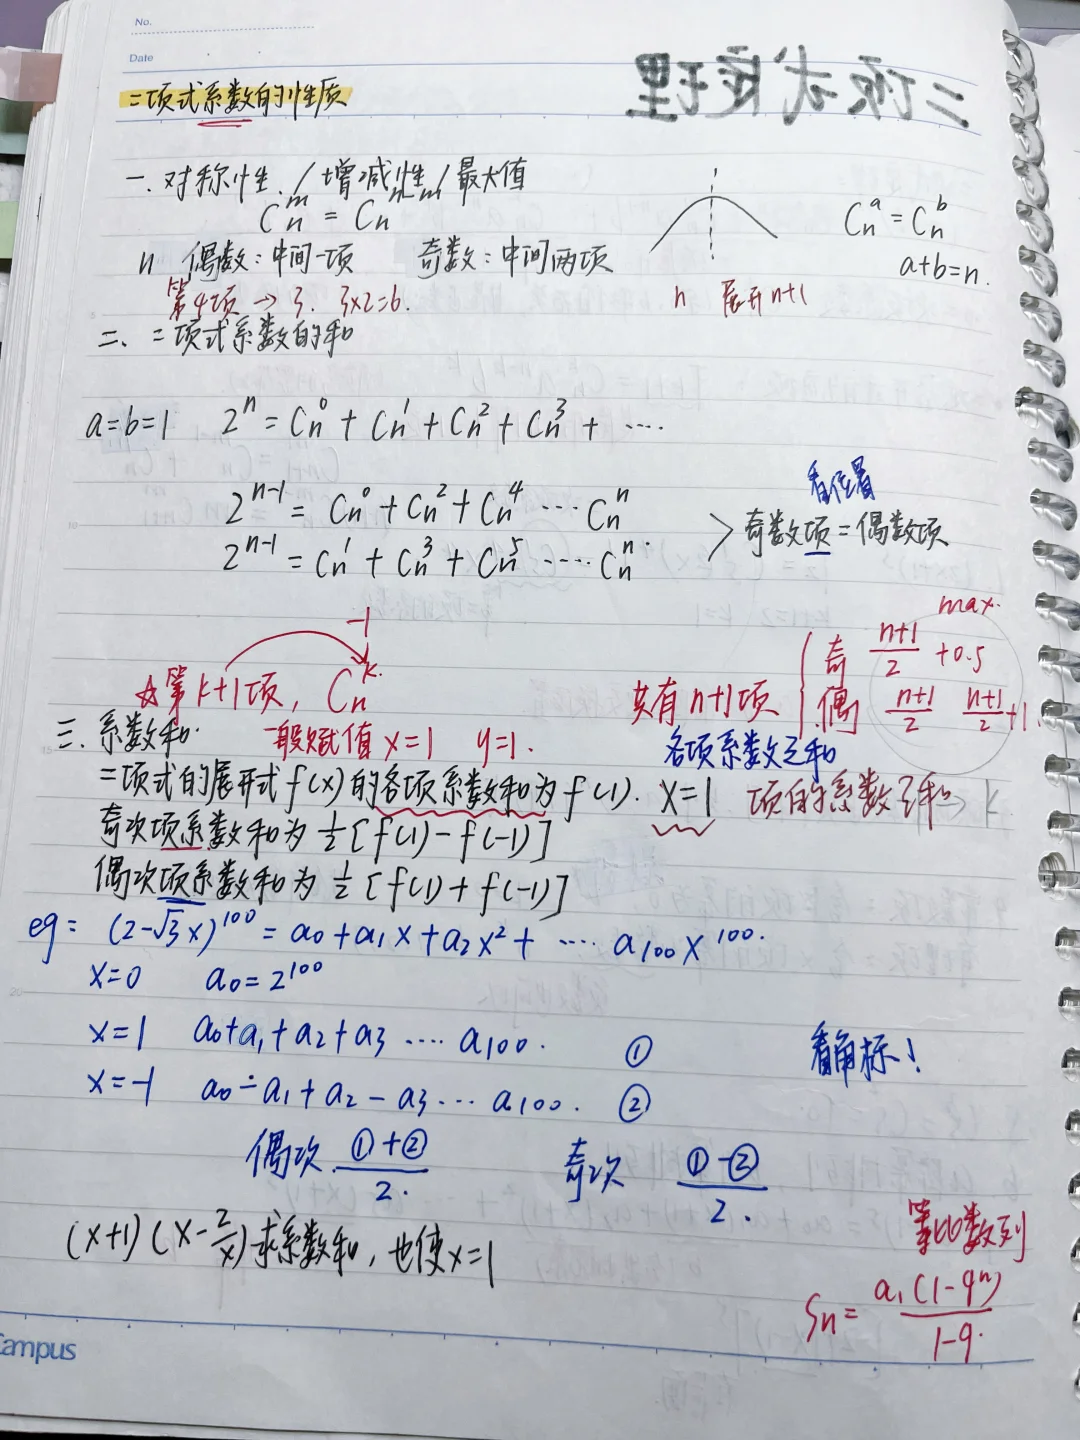 No.
Date
二项式定理
二项式系数的性质
一.对称性./增减性/最大值
Cₙᵐ = Cₙⁿ⁻ᵐ
Cₙᵃ = Cₙᵇ
a+b=n.
n 偶数:中间一项 奇数:中间两项
第4项 → 3. 3×2=6.
n 展开n+1
二、二项式系数的和
a=b=1 2ⁿ = Cₙ⁰ + Cₙ¹ + Cₙ² + Cₙ³ + ····
2ⁿ⁻¹ = Cₙ⁰ + Cₙ² + Cₙ⁴ ··· Cₙⁿ
2ⁿ⁻¹ = Cₙ¹ + Cₙ³ + Cₙ⁵ ···· Cₙⁿ.
看位置
> 奇数项 = 偶数项
-1
☆第k+1项, Cₙᵏ.
max.
共有n+1项 { 奇 (n+1)/2 +0.5
偶 (n+1)/2 (n+1)/2+1.
三.系数和. 一般赋值 x=1 y=1.
各项系数之和
二项式的展开式f(x)的各项系数和为f(1). x=1 项的系数之和
奇次项系数和为½[f(1)-f(-1)]
偶次项系数和为½[f(1)+f(-1)]
eg: (2-√3x)¹⁰⁰ = a₀+a₁x+a₂x²+ ···· a₁₀₀x¹⁰⁰.
x=0 a₀=2¹⁰⁰
x=1 a₀+a₁+a₂+a₃ ···· a₁₀₀. ①
看角标!
x=-1 a₀-a₁+a₂-a₃··· a₁₀₀. ②
偶次 (①+②)/2. 奇次 (①-②)/2.
(x+1)(x-2/x)求系数和,也使x=1
等比数列
Sn= a₁(1-qⁿ)/(1-q).
Campus